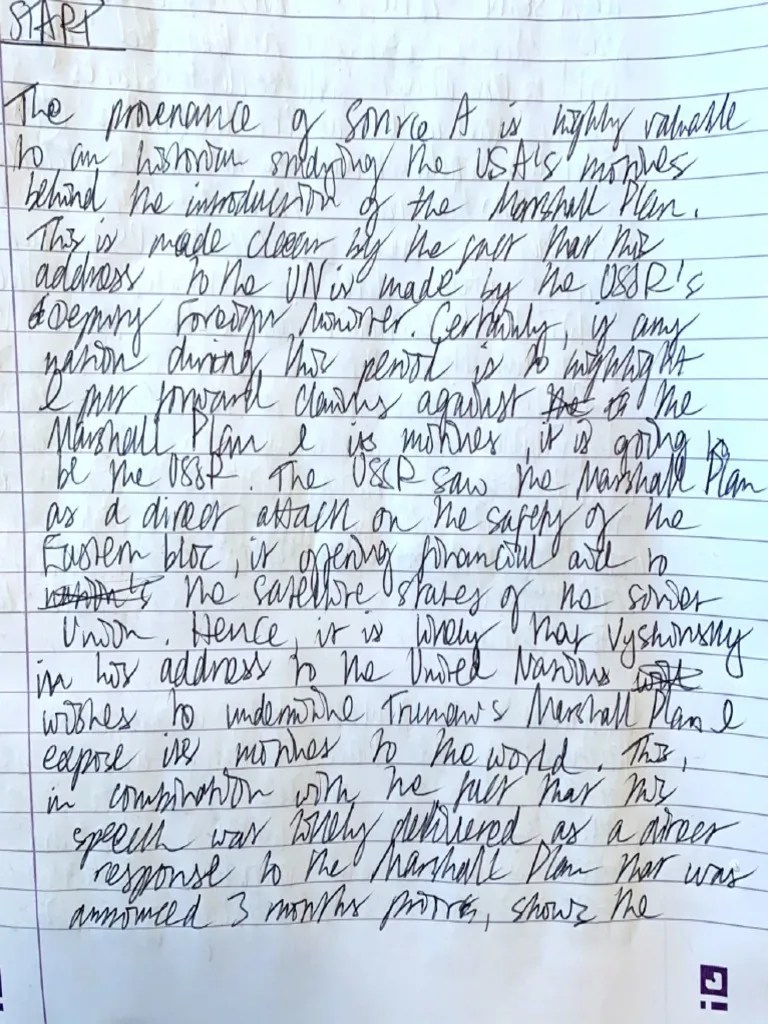 START
The provenance of Source A is highly valuable
to an historian studying the USA's motives
behind the introduction of the Marshall Plan.
This is made clear by the fact that this
address to the UN is made by the USSR's
Deputy Foreign Minister. Certainly, if any
nation during this period is to highlight
& put forward claims against the
Marshall Plan & its motives, it is going to
be the USSR. The USSR saw the Marshall Plan
as a direct attack on the safety of the
Eastern bloc, it offering financial aid to
the satellite states of the soviet
Union. Hence, it is likely that Vyshinsky
in his address to the United Nations
wishes to undermine Truman's Marshall Plan &
expose its motives to the world. This,
in combination with the fact that this
speech was likely delivered as a direct
response to the Marshall Plan that was
announced 3 months prior, shows the